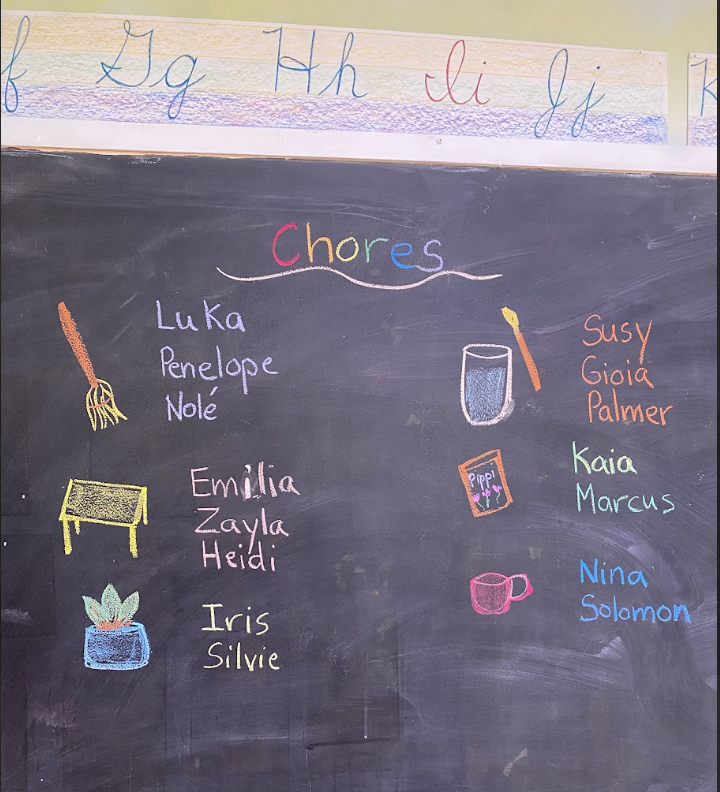 f Gg Hh Ii Jj K
Chores
Luka
Penelope
Nolé
Susy
Gioia
Palmer
Emilia
Zayla
Heidi
Pippi
Kaia
Marcus
Iris
Silvie
Nina
Solomon